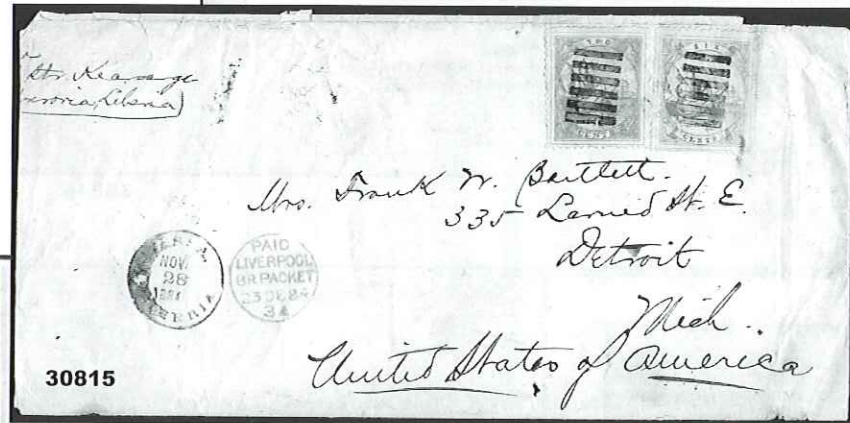 Str. Kearsarge
Liberia)
TWO
CENTS
SIX
CENTS
Mrs. Frank W. Bartlett.
335 Larned St. E.
Detroit
Mich.
United States of America
NOV.
28
1884
LIBERIA
PAID
LIVERPOOL
BR PACKET
23 DE 84
3A
30815